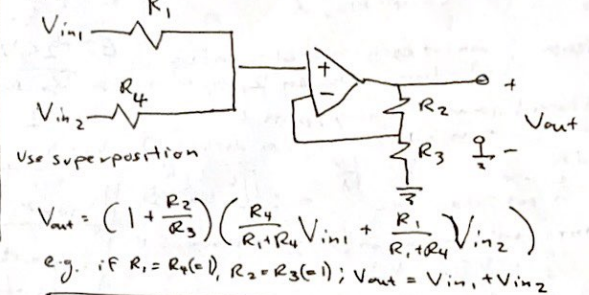 R₁
Vin₁
R₄
Vin₂
+
−
+
R₂
Vout
R₃
−
Use superposition
Vout = (1 + R₂/R₃)(R₄/(R₁+R₄) Vin₁ + R₁/(R₁+R₄) Vin₂)
e.g. if R₁ = R₄(=1), R₂ = R₃(=1); Vout = Vin₁ + Vin₂